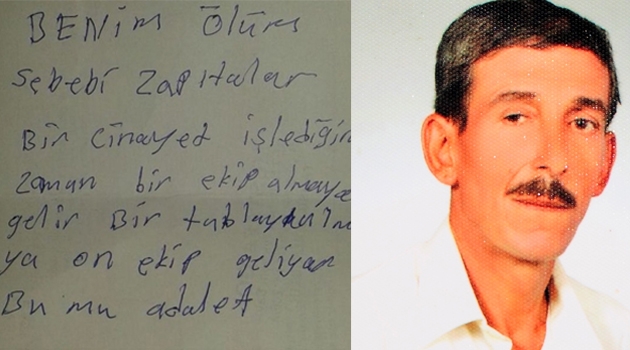 BENİM ÖLÜM
Sebebi zabıtalar
Bir cinayet işlediğin
zaman bir ekip almaya
gelir Bir tablaya
ya on ekip geliyor
Bu mu adalet